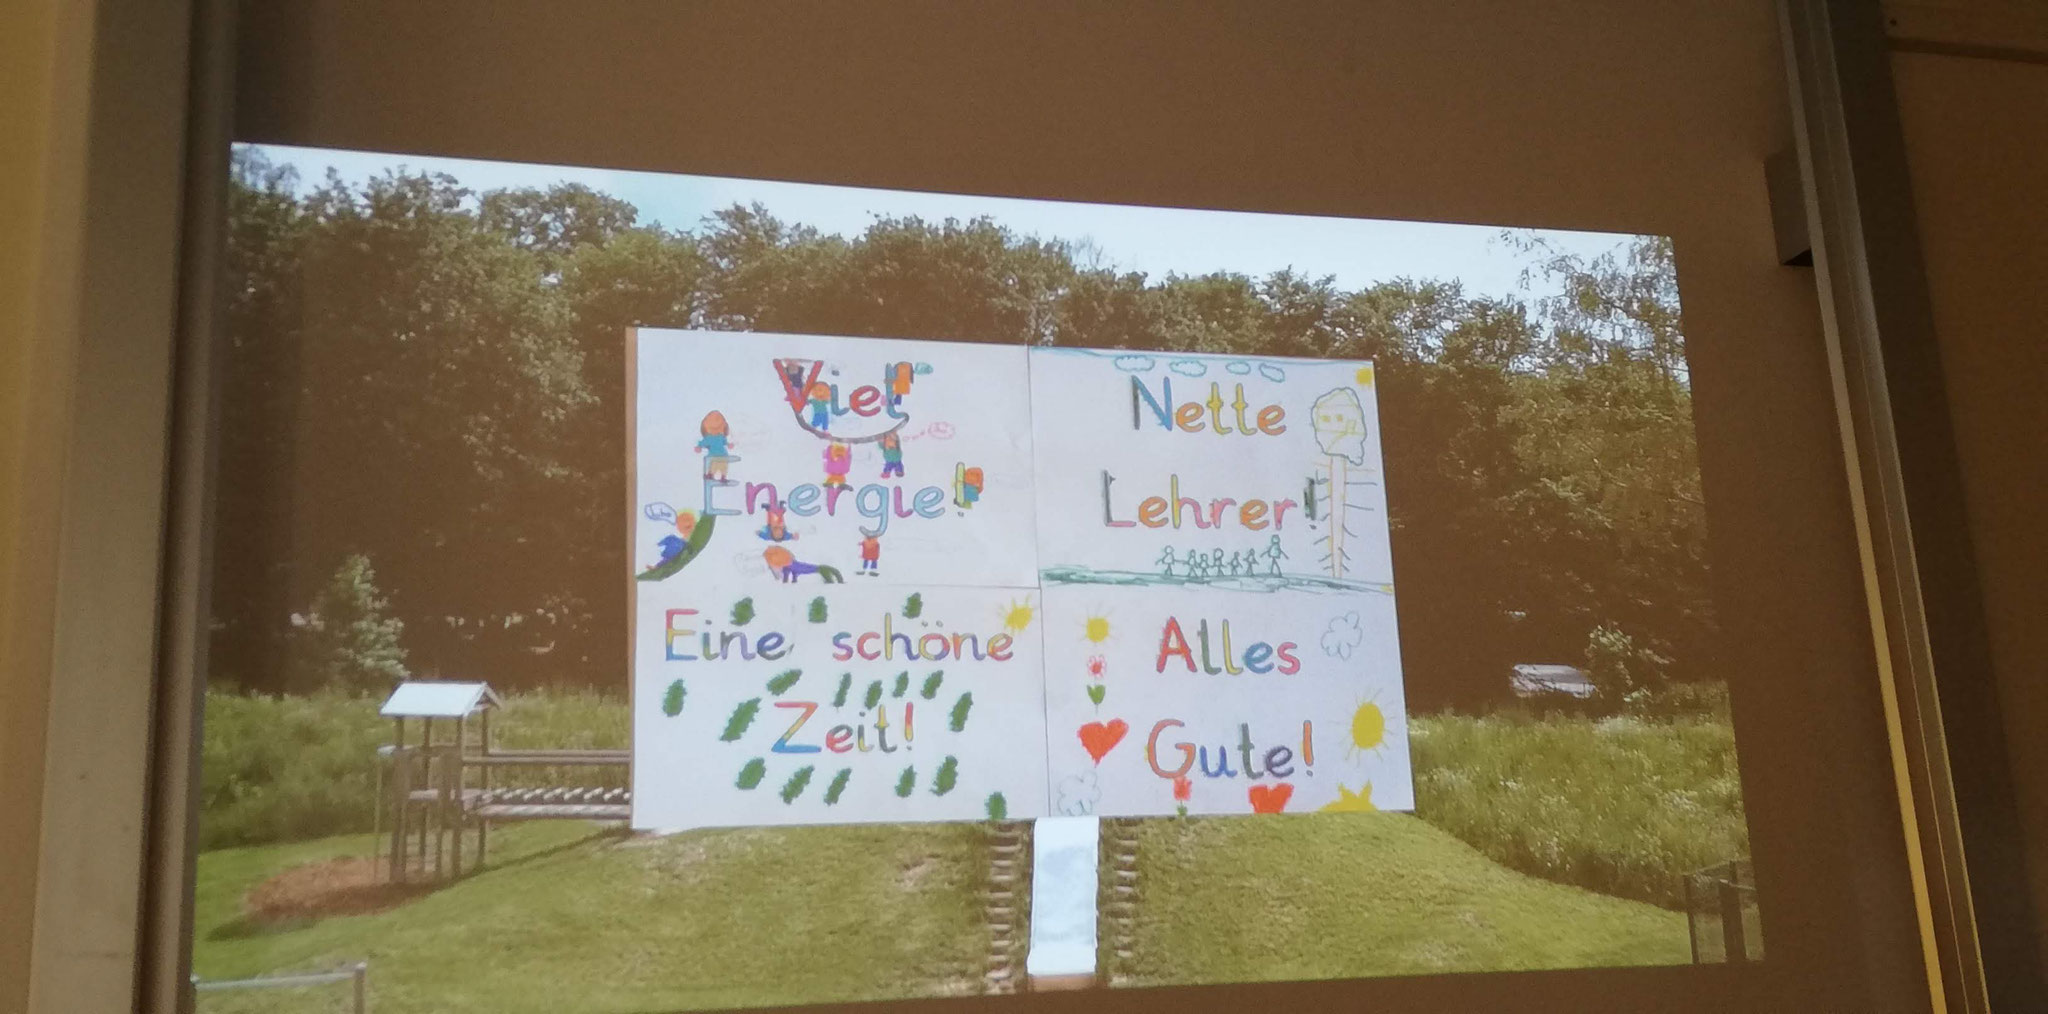 Viel
Energie!
Nette
Lehrer!
Eine schöne
Zeit!
Alles
Gute!